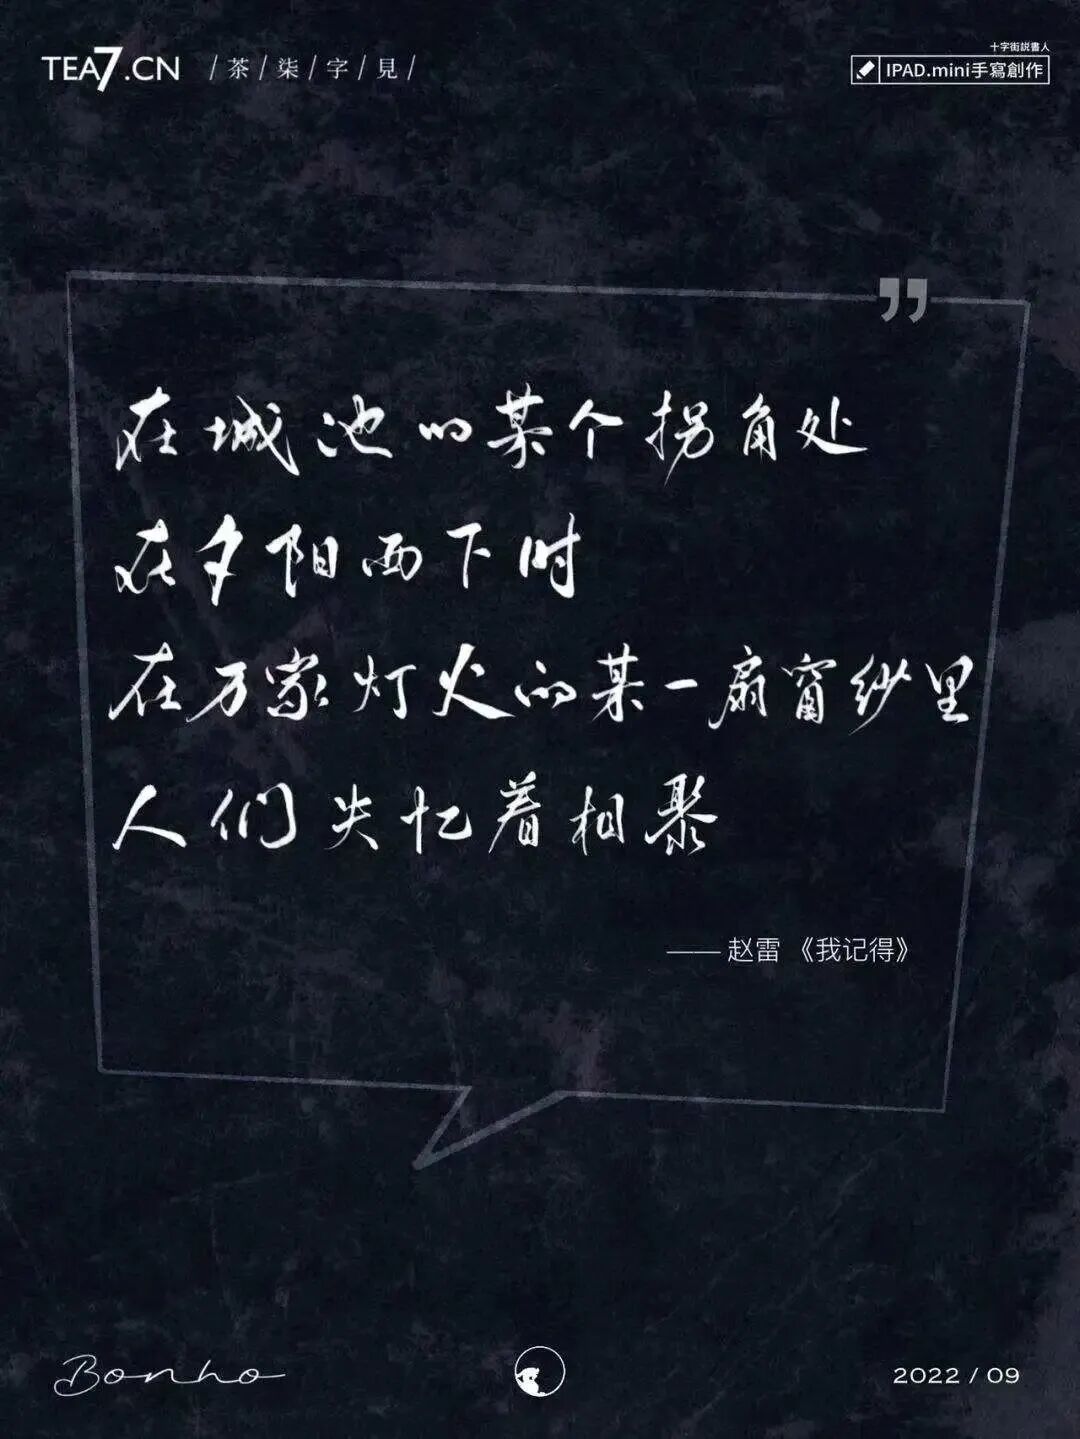 TEA7.CN /茶/柒/字/見/
十字街説書人
IPAD.mini手寫創作
”
在城池的某个拐角处
在夕阳西下时
在万家灯火的某一扇窗纱里
人们失忆着相聚
—— 赵雷 《我记得》
Bonho
2022 / 09